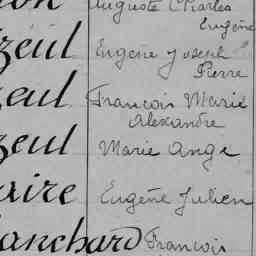 Auguste Charles
Eugène
zeul Eugène Joseph
Pierre
zeul François Marie
Alexandre
zeul Marie Ange
aire Eugène Julien
lanchard François